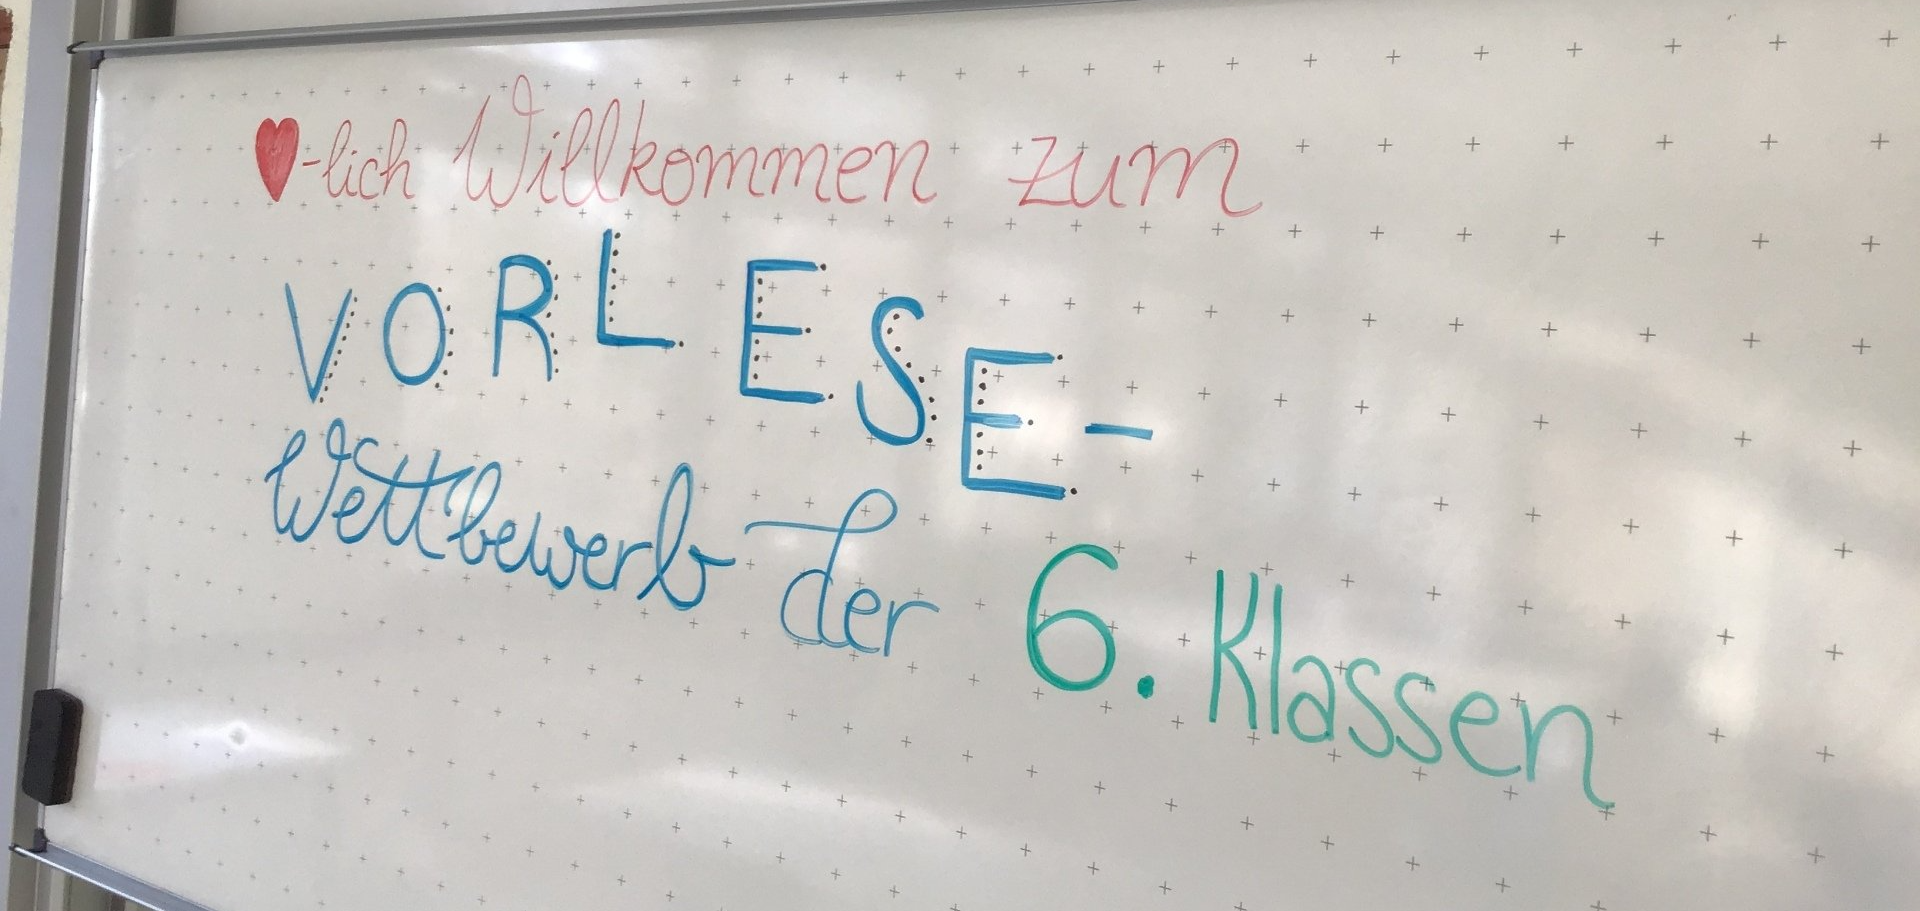 ♥-lich Willkommen zum
VORLESE-
Wettbewerb der 6. Klassen